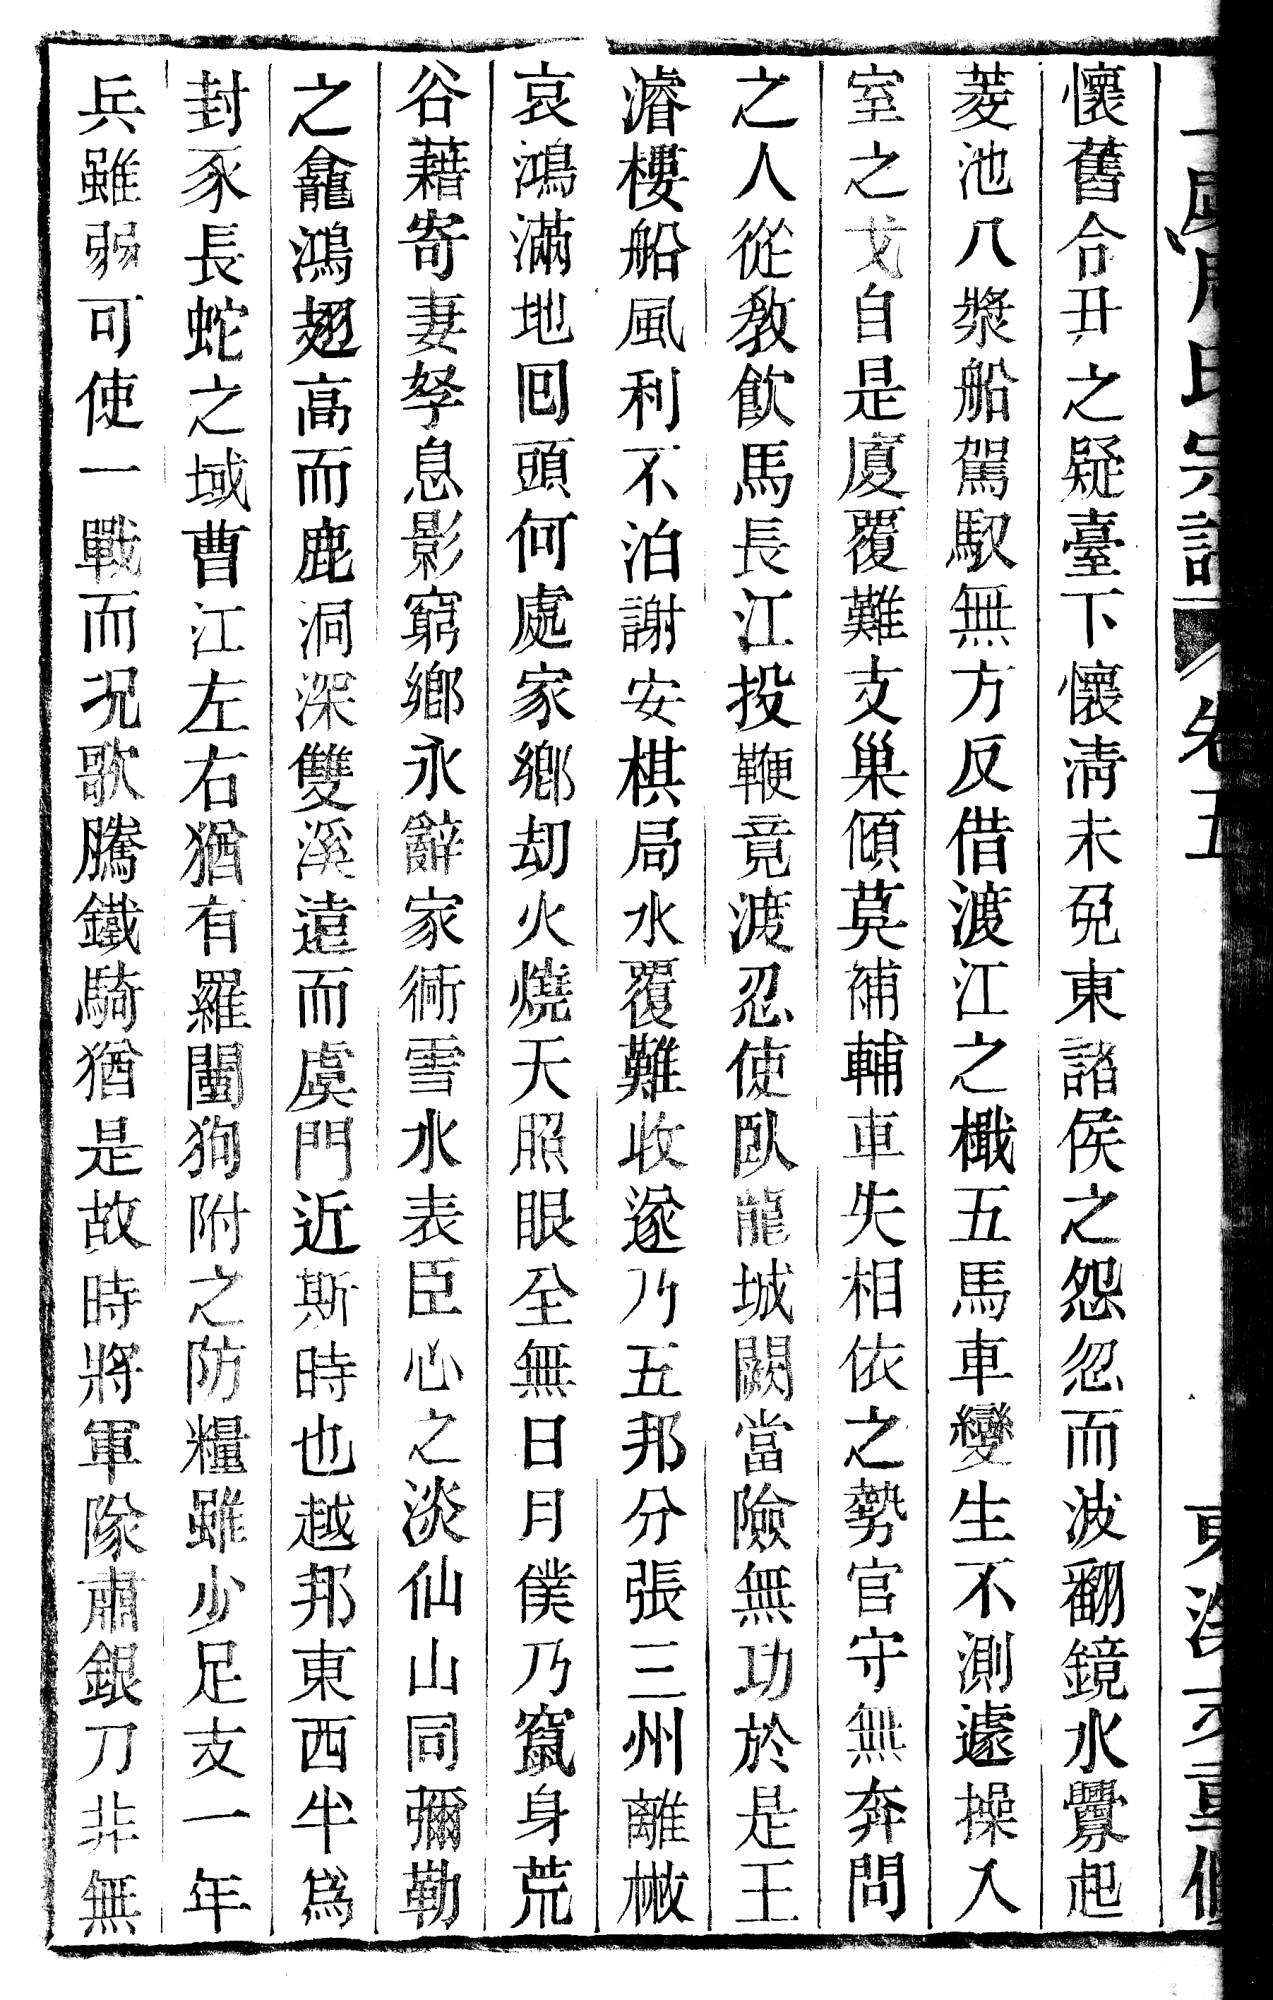 氏宗譜 卷五
懷舊合丑之疑臺下懷清未免東諸侯之怨忽而波翻鏡水釁起
菱池八槳船駕馭無方反借渡江之檝五馬車變生不測遽操入
室之戈自是廈覆難支巢傾莫補輔車失相依之勢官守無奔問
之人從教飲馬長江投鞭竟渡忍使臥龍城闕當險無功於是王
濬樓船風利不泊謝安棋局水覆難收遂乃五邦分張三州離檄
哀鴻滿地囘頭何處家鄉刧火燒天照眼全無日月僕乃竄身荒
谷藉寄妻孥息影窮鄉永辭家衖雪水表臣心之淡仙山同彌勒
之龕鴻翅高而鹿洞深雙溪遠而虞門近斯時也越邦東西半爲
封豕長蛇之域曹江左右猶有羅闉狗附之防糧雖少足支一年
兵雖弱可使一戰而况歌騰鐵騎猶是故時將軍隊肅銀刀非無